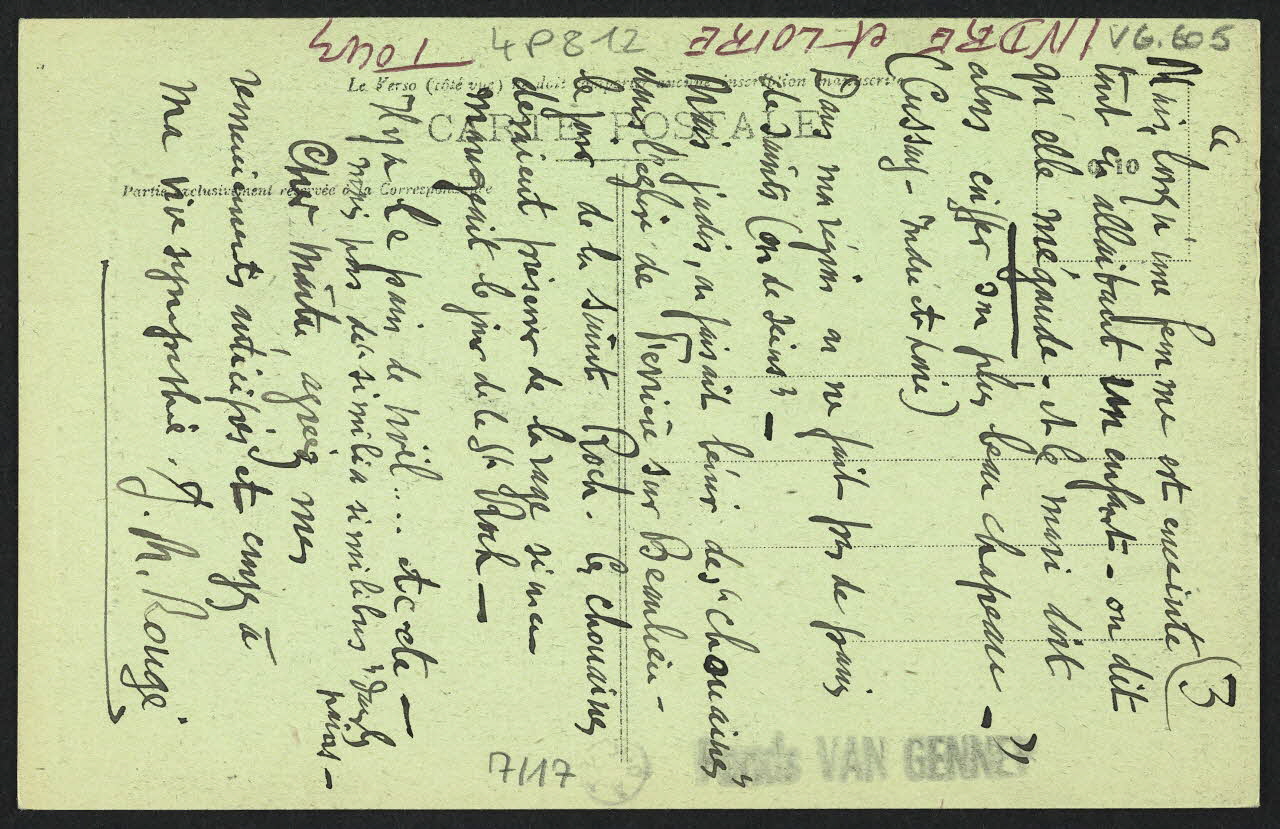 VG. 605
INDRE et LOIRE
4P 812
TOURS
Le Verso (côté vue) ne doit comporter aucune inscription manuscrite
CARTE POSTALE
Partie exclusivement réservée à la Correspondance
0 10
3
Mais, lorsqu'une femme est enceinte
tout en allaitant un enfant - on dit
qu'elle mégaude - et le mari doit
alors coiffer son plus beau chapeau -"
(Cussay - Indre et Loire)
Dans ma région on ne fait pas de pains
de saints (ou de seins") -
Mais jadis, on faisait bénir des "chouaines"
dans l'église de Ferrière sur Beaulieu -
le jour de la saint Roch. Ces chouaines
devaient préserver de la rage si on en
mangeait le jour de la St Roch -
Il y a le pain de Noël... etc etc -
mais pas de "similia similibus" dans
pains -
Cher Maître, agréez mes
remerciements anticipés et croyez à
ma vive sympathie. J. M. Rougé.
7/17
Fonds VAN GENNEP